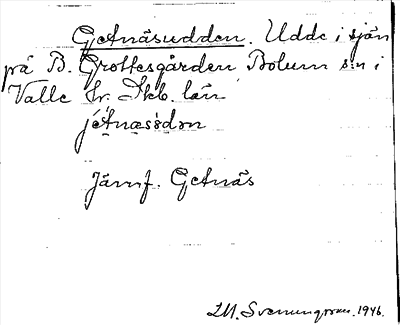 Getnäsudden. Udde i sjön
på B. Grottesgården Bolum sn i
Valle hr. Skb. län
jétnæsùdən
Jämf. Getnäs
I.M. Svenungsson. 1946.